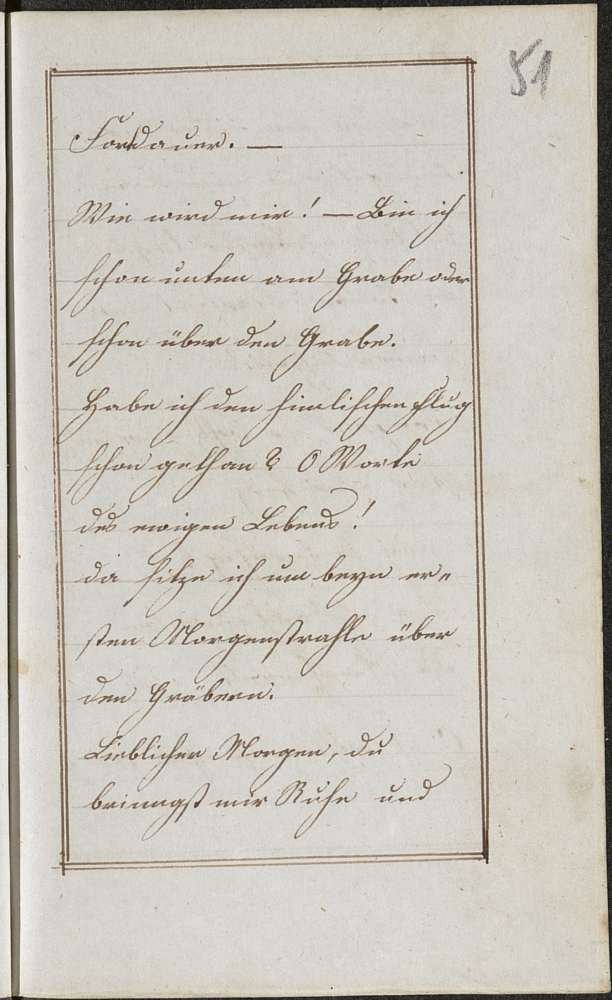 51
Fortdauer. —
Wie wird mir! — Bin ich
schon unten am Grabe oder
schon über den Grabe.
Habe ich den himlischen Flug
schon gethan? O Worte
des ewigen Lebens!
da sitze ich nun beym er„
sten Morgenstrahle über
den Gräbern.
Lieblicher Morgen, du
bringst mir Ruhe und